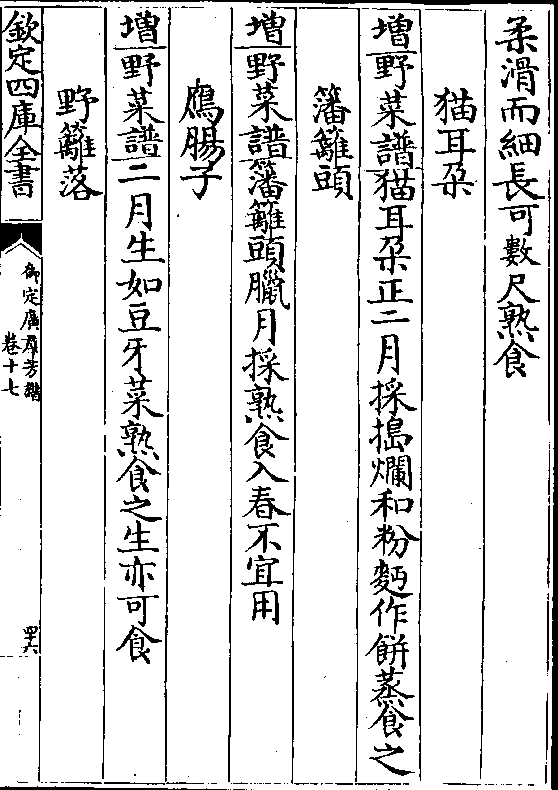 柔滑而細長可數尺熟食
猫耳朶
増野菜譜猫耳朶正二月採搗爛和粉麪作餅蒸食之
籓籬頭
増野菜譜籓籬頭臘月採熟食入春不宜用
鴈腸子
増野菜譜二月生如豆牙菜熟食之生亦可食
野籬落
欽定四庫全書
御定廣羣芳譜
卷十七
四六